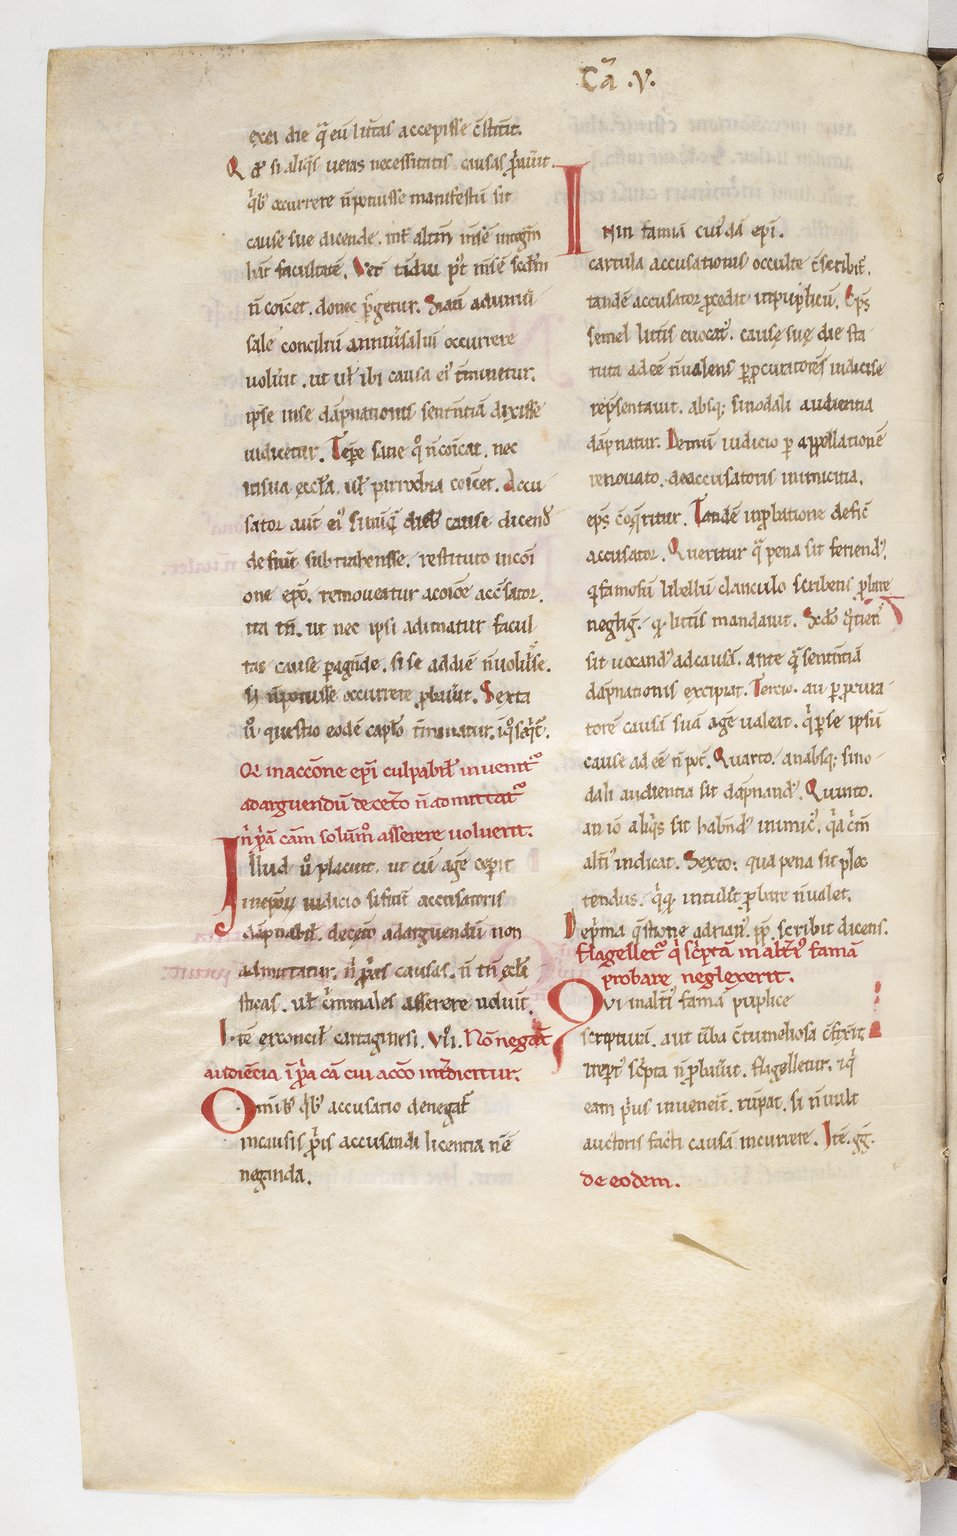 Cā .V.
exei die q̄ eū litt̄as accepisse c̄stitit.
Qd̓ si aliq̇s ueras necessitatis causas p̄buerit
q̇b; occurrere n̄ potuisse manifestū sit
cause sue dicende. int̄ alterū mense integrū
hāt facultatē. Vert̄ tādiu p̓t mense secdm
n̄ coicet. donec p̄getur. Si aūt aduniuer
sale conciliū anniuersalui occurrere
uoluit. ut ul̄ ibi causa ei᾿ t̄minetur.
ip̄se inse dāpnationis sententiā dixisse
iudicetur. Tēpr̄e sane q̊ n̄ coicat. nec
insua eccl̄a. ul̄ parrochia coicet. Accu
sator aūt ei᾿ si nūq̄ dieb᾿ cause dicend᾿
defuit subtrahensse. restituto in coī
one epō. remoueatur acoīoē accusator.
ita tn̄. ut nec ipsi adimatur facul
tas cause peragnde. si se addiē n̄ uoluisse.
s; n̄ potuisse occurrere p̄buerit. Sexta
ů questio eodē capl̄o t̄minatur. iq̊ seq̇t̄.
Qi inaccōne epī culpabil̄ inuenitur
adarguendū decet̄o n̄ admittatur
n̄ p̄ā cām solum̄o asserere uoluerit.
Illud ů placuit. ut cū agē cepit
inepōꝝ iudicio si fuit accusatoris
dāpnabil̄. decet̄o adarguendū non
admittatur. n̄ p̄ias causas. n̄ tn̄ eccl̄a
sticas. ul̄ c̄minales asserere uoluit.
Itē exconcil̄ cartaginesi. Vii. Nō negat̄
audiēcia ī p̄ā cā cui accō int̄dicitur.
Omib᾿ q̇b᾿ accusatio denegat̄
incausis p̄is accusandi licentia nē
neganda.
IN infamiā cui᾿dā epī.
cartula accusationis occulte c̄scribit̄.
tandē accusator p̄cedit inpuplicū. Ep̄s
semel litt̄is euocat᾿. causę suę die sta
tuta adeē n̄ualens p̄p̄curatorēs iudicise
rep̄sentauit. absq; sinodali audientia
dāpnatur. Demū iudicio p̄ appellationē
renouato. deaccusatoris inimicitia.
ep̄s c̄q̄ritur. Tandē inp̄batione defic̄
accusator. Queritur q̄ pena sit feriend᾿.
q̇ famosū libellū clanculo scribens p̄bare
negliḡ. q̇ litt̄is mandauit. Scdō q̊tiens
sit uocand᾿ adcausā. ante q̄ sententiā
dāpnationis excipiat. Tercio. an p̄ p̄cura
torē causā suā agē ualeat. q̇ p̄se ipsū
cause adeē n̄ pot̄. Quarto. anabsq; sino
dali audientia sit dāpnand᾿. Quinto.
an iō aliq̇s sit habend᾿ inimic᾿. q̇a c̄m̄
alt̄i᾿ indicat. Sexto; qua pena sit plec
tendus. q̇ q̇ intulit p̄bare n̄ualet.
Dep̄ma q̄stione adrian᾿. pp̄. scribit dicens.
flagelletur q̇ sc̄ptā in alt̄i᾿ famā
probare neglexerit.
Qui inalt̄i᾿ famā puplice
scripturā. aut ūba c̄tumeliosa c̄fixerit.
rep̄t᾿ sc̄pta n̄ p̄bauerit. flagelletur. ⁊q̇
eam p̄us inuenerit. rūpat. si n̄ uult
auctoris facti causā incurrere. Itē. gḡ.
de eodem.